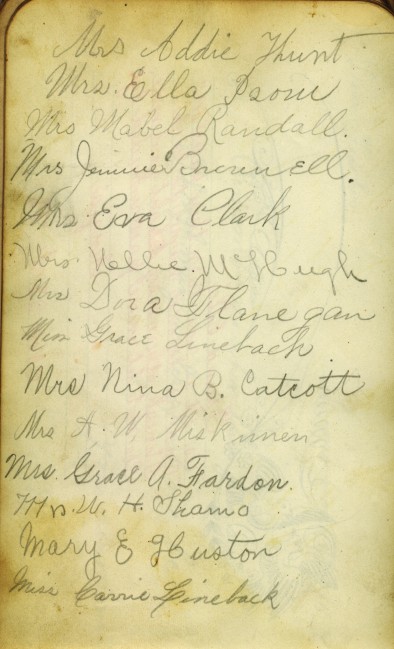 Mrs Addie Hunt
Mrs. Ella Isom
Mrs Mabel Randall.
Mrs Jennie Brownell.
Mrs Eva Clark
Mrs. Nellie McHugh
Mrs Dora Flanegan
Miss Grace Lineback
Mrs Nina B. Catcott
Mrs A. W. Miskimen
Mrs. Grace A. Fardon.
Mrs. W. H. Shamo
Mary E Huston
Miss Carrie Lineback